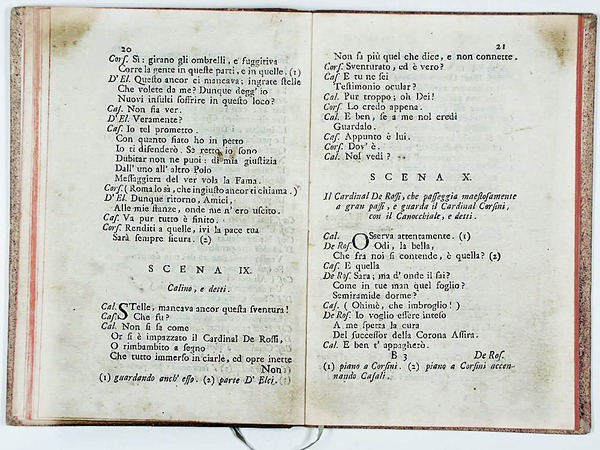 20
Cors. Sì: girano gli ombrelli, e fuggitiva
Corre la gente in queste parti, e in quelle. (1)
D' El. Questo ancor ci mancava; ingrate stelle
Che volete da me? Dunque degg' io
Nuovi insulti soffrire in questo loco?
Cas. Non sia ver.
D' El. Veramente?
Cas. Io tel prometto.
Con quanto fiato ho in petto
Io ti difenderò. Sa retto io sono
Dubitar non ne puoi: di mia giustizia
Dall' uno all' altro Polo
Messaggiera del ver vola la Fama.
Cors. (Roma lo sà, che ingiusto ancor ti chiama.)
D' El. Dunque ritorno, Amici,
Alle mie stanze, onde me n' ero uscito.
Cas. Va pur tutto è finito.
Cors. Renditi a quelle, ivi la pace tua
Sarà sempre sicura. (2)
SCENA IX.
Calino, e detti.
Cal. STelle, mancava ancor questa sventura!
Cas. Che fu?
Cal. Non si sa come
Or si è impazzato il Cardinal De Rossi,
O rimbambito a segno
Che tutto immerso in ciarle, ed opre inette
Non
(1) guardando anch' esso. (2) parte D' Elci.
21
Non sa più quel che dice, e non connette.
Cors. Sventurato, ed è vero?
Cas. E tu ne sei
Testimonio ocular?
Cal. Pur troppo; oh Dei!
Cors. Lo credo appena.
Cal. E ben, se a me nol credi
Guardalo.
Cas. Appunto è lui.
Cors. Dov' è.
Cal. Nol vedi?
SCENA X.
Il Cardinal De Rossi, che passeggia maestosamente
a gran passi, e guarda il Cardinal Corsini,
con il Canocchiale, e detti.
Cal. OSserva attentamente. (1)
De Ros. Odi, la bella,
Che fra noi si contende, è quella? (2)
Cas. E quella
De Ros. Sara; ma d' onde il sai?
Come in tue man quel foglio?
Semiramide dorme?
Cas. (Ohimè, che imbroglio!)
De Ros. Io voglio esser inteso
A me spetta la cura
Del successor della Corona Assira.
Cal. E ben t' appagherò.
B 3 De Ros.
(1) piano a Corsini. (2) piano a Corsini accen-
nando Casali.